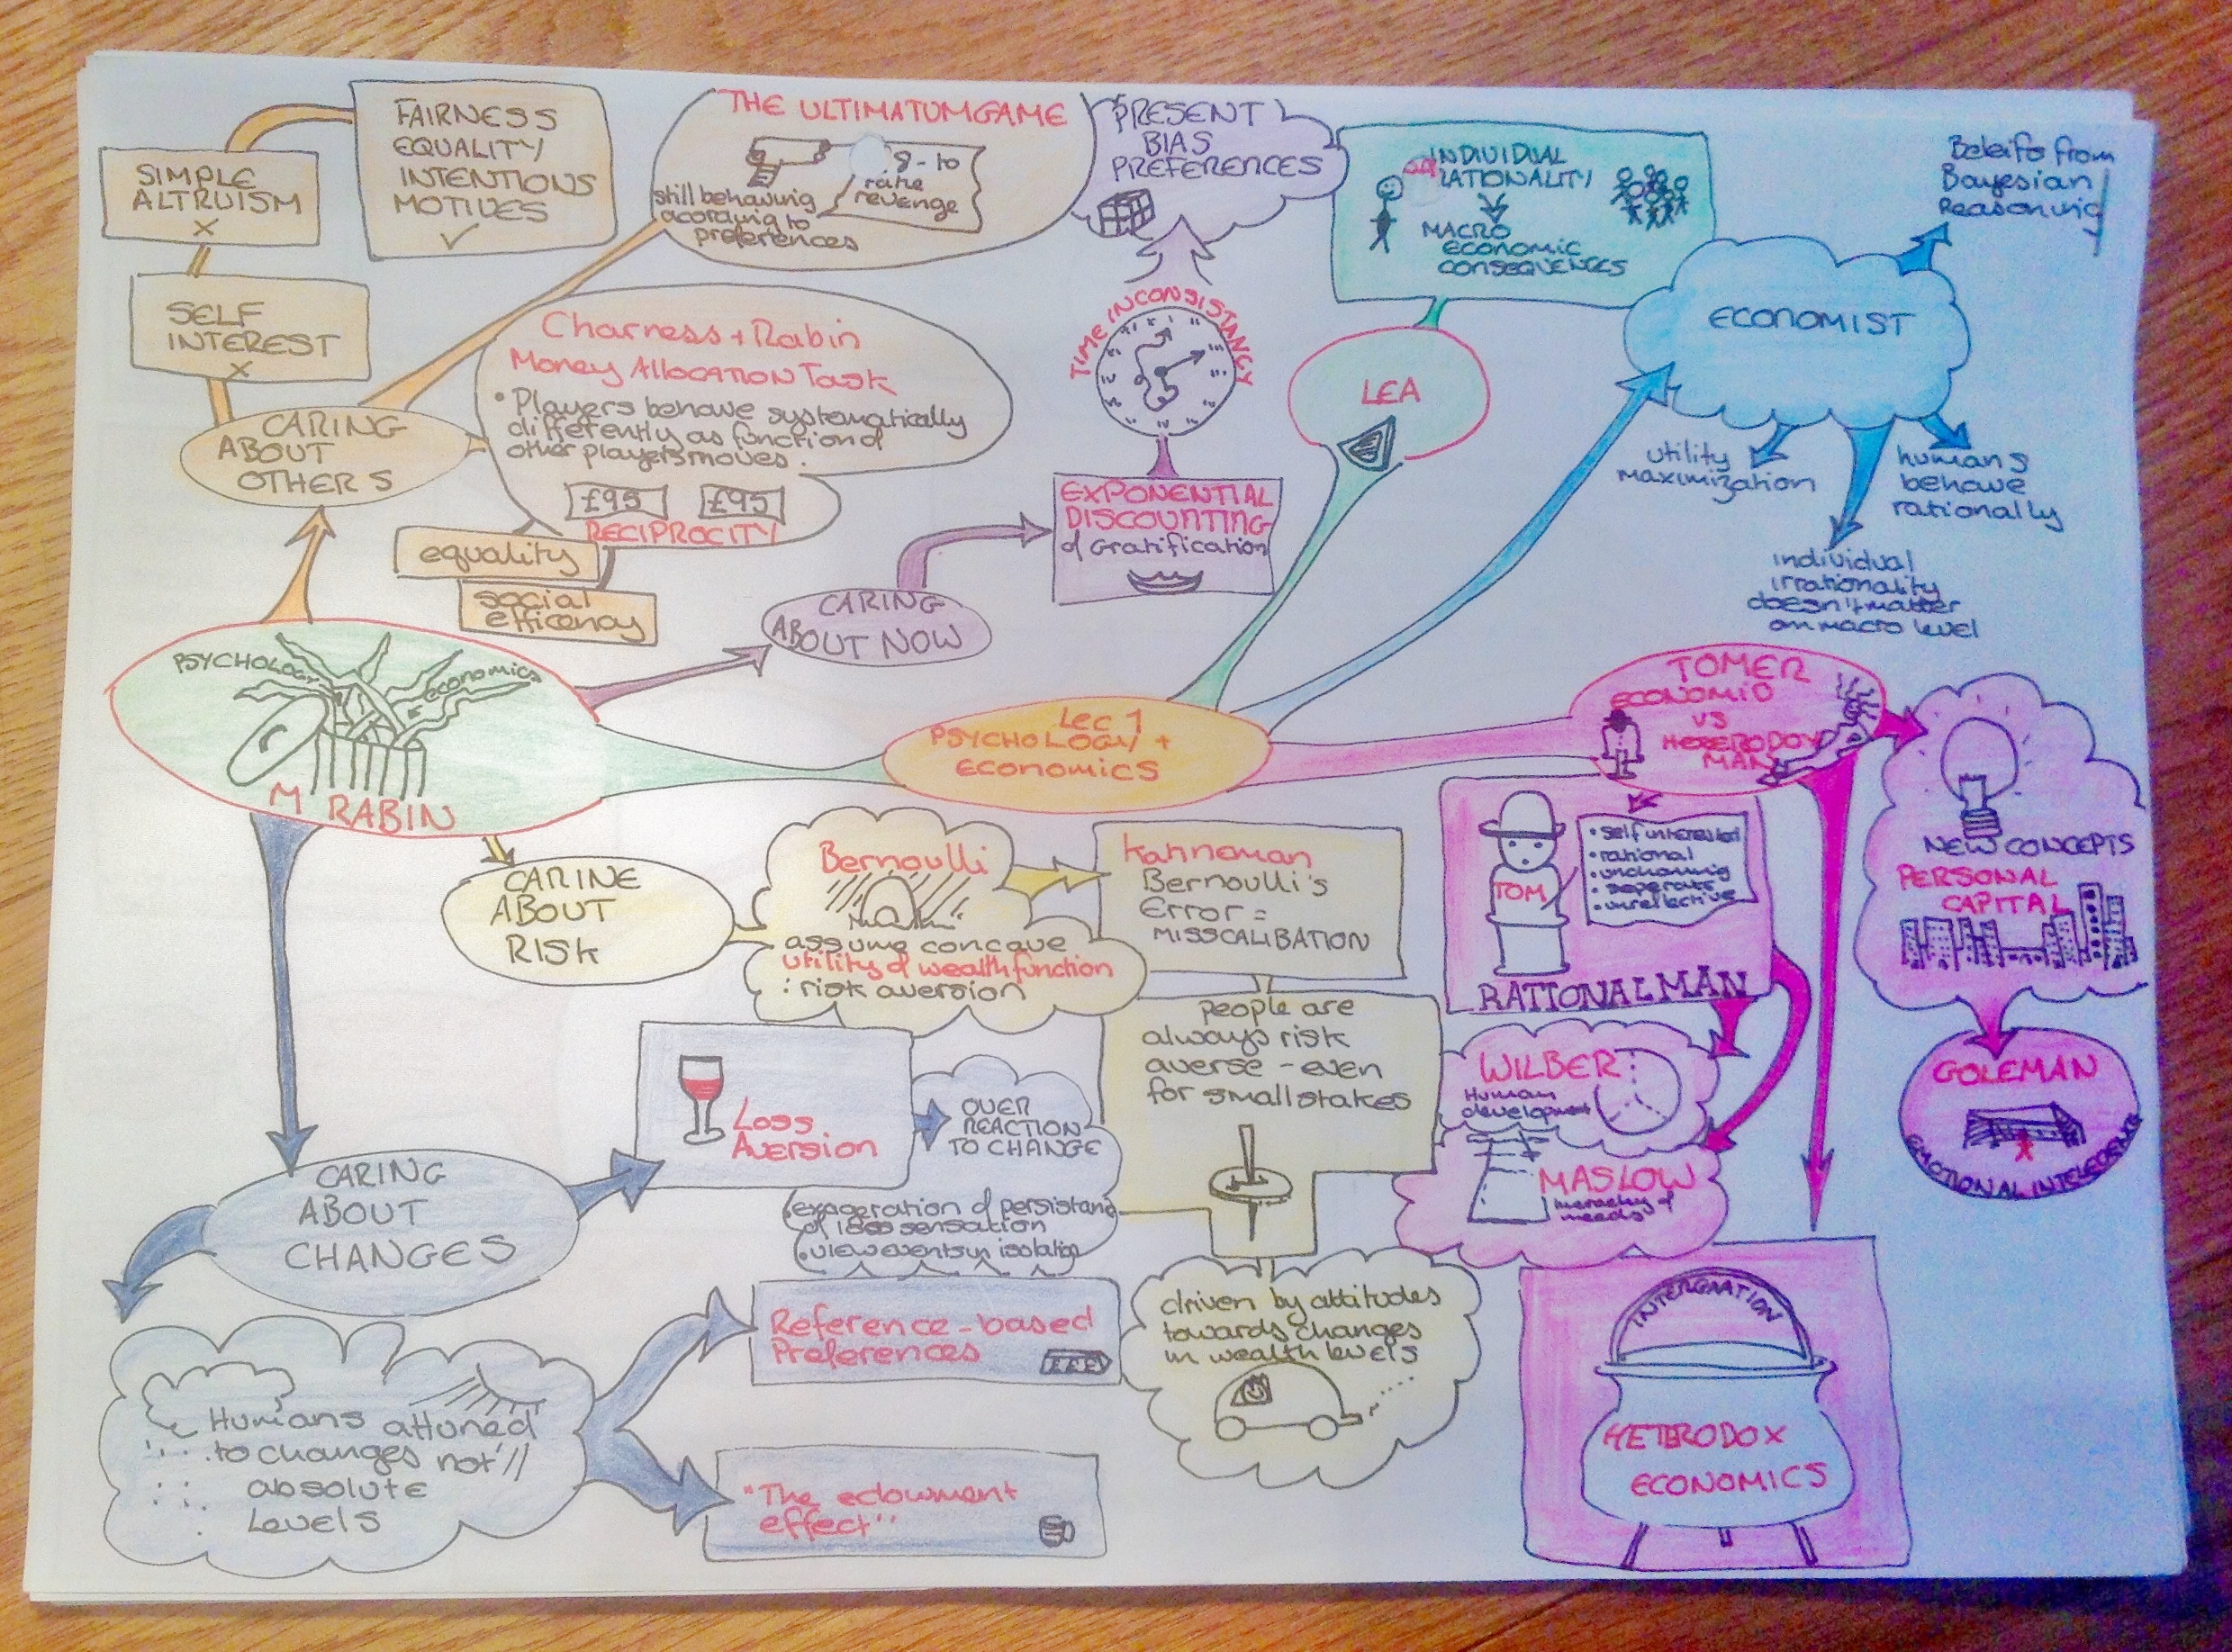 FAIRNESS
EQUALITY
INTENTIONS
MOTIVES
SIMPLE
ALTRUISM
X
SELF
INTEREST
X
CARING
ABOUT
OTHERS
THE ULTIMATUM GAME
8-10
rake
revenge
still behaving
acording to
preferences
Charness + Rabin
Money Allocation Task
• Players behave systematically
differently as function of
other players moves.
£95 £95
RECIPROCITY
equality
social
efficency
PRESENT
BIAS
PREFERENCES
TIME INCONSISTANCY
EXPONENTIAL
DISCOUNTING
of Gratification
CARING
ABOUT NOW
INDIVIDUAL
RATIONALITY
MACRO
ECONOMIC
CONSEQUENCES
LEA
ECONOMIST
Beleifs from
Bayesian
Reasoning
utility
maximization
humans
behave
rationally
individual
irrationality
doesn't matter
on macro level
PSYCHOLOGY
economics
M RABIN
Lec 1
PSYCHOLOGY +
ECONOMICS
TOMER
ECONOMIC
VS
HETERODOX
MAN
NEW CONCEPTS
PERSONAL
CAPITAL
GOLEMAN
TOM
• self interested
• rational
• unchanging
• seperate
• unreflective
RATIONAL MAN
WILBER
Human
development
MASLOW
hierachy of
needs
INTERGRATION
HETERODOX
ECONOMICS
CARINE
ABOUT
RISK
Bernoulli
assume concave
utility of wealth function
: risk aversion
Kahneman
Bernoulli's
Error =
MISSCALIBATION
people are
always risk
averse - even
for small stakes
driven by attitudes
towards changes
in wealth levels
CARING
ABOUT
CHANGES
Loss
Aversion
OVER
REACTION
TO CHANGE
exageration of persistance
of loss sensation
• view events in isolation
Humans attuned
to changes not
absolute
Levels
Reference-based
Preferences
£££
"The edowment
effect"